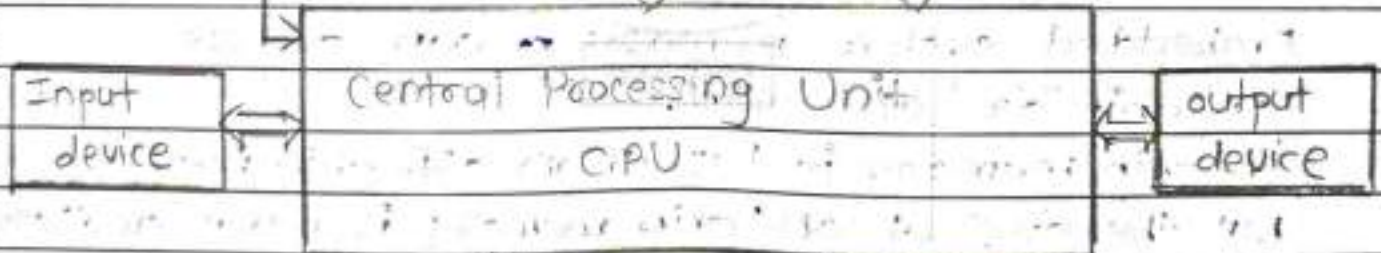 Input
device
Central Processing Unit
CPU
output
device